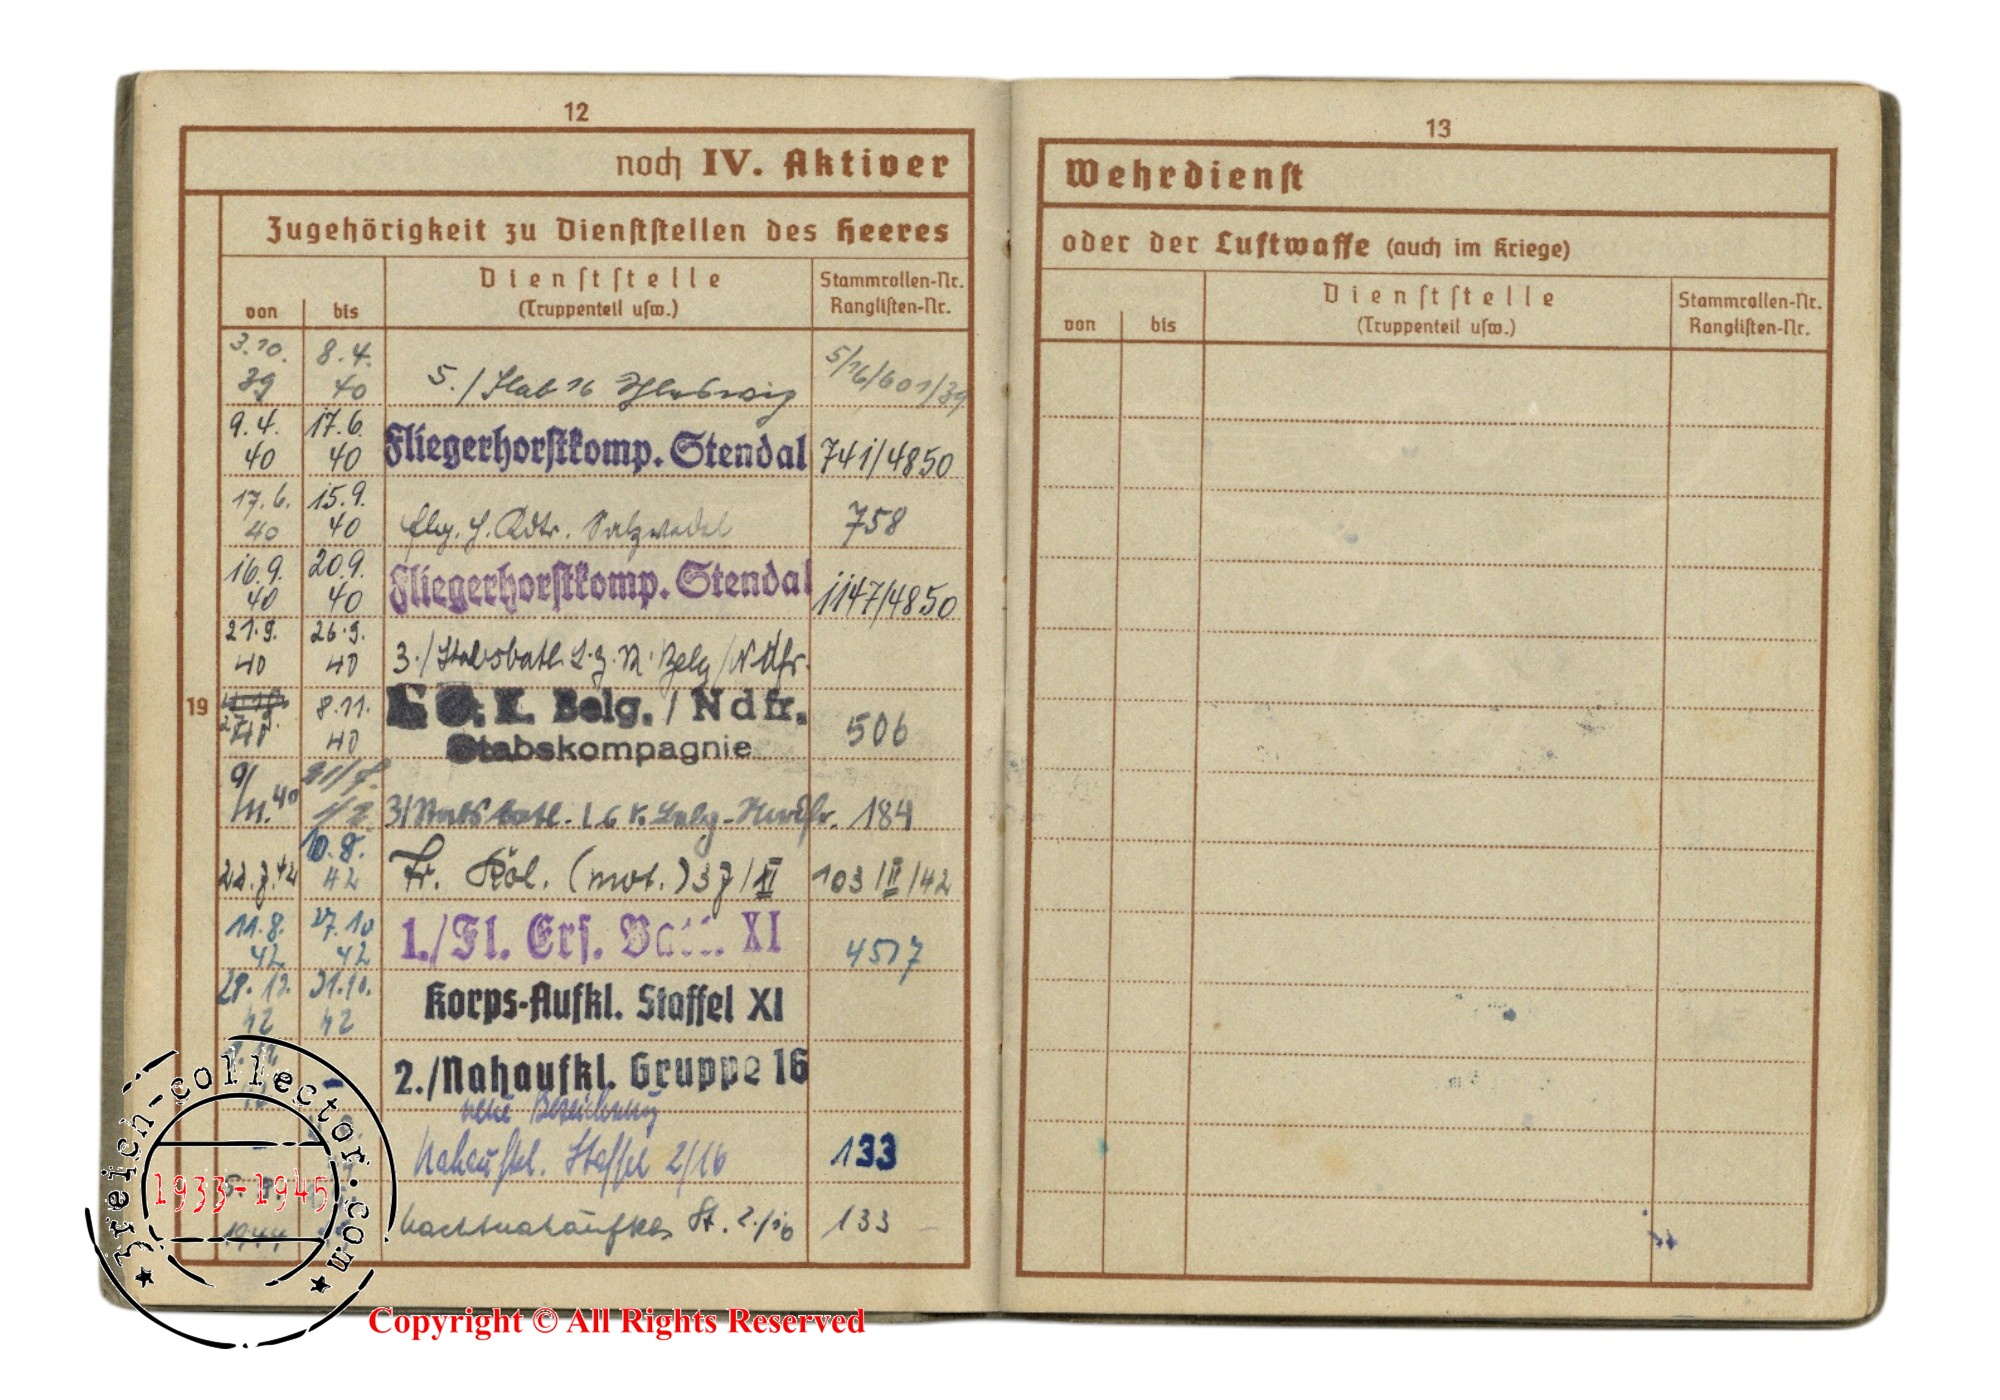 12
noch IV. Aktiver
Zugehörigkeit zu Dienststellen des Heeres
von bis Dienststelle (Truppenteil usw.) Stammrollen-Nr. Ranglisten-Nr.
3.10. 39 8.4. 40 5./ 5/16/601/39
9.4. 40 17.6. 40 Fliegerhorstkomp. Stendal 741/4850
17.6. 40 15.9. 40 Flg. H. Kdtr. Salzwedel 758
16.9. 40 20.9. 40 Fliegerhorstkomp. Stendal 1147/4850
21.9. 40 26.9. 40 3./Stabsbatl. L.G.K. Belg/Ndfr.
19 27.9. 40 8.11. 40 L.G.K. Belg./Ndfr.
Stabskompagnie 506
9/11.40 3/Stabsbatl. L G K. Belg-Nordfr. 184
22.7.42 10.8. 42 Fr. Köl. (mot.) 37/II 103/II/42
11.8. 42 27.10 42 1./Fl. Ers. Batl. XI 4517
28.10. 42 31.10. 42 Korps-Aufkl. Staffel XI
2./Nahaufkl. Gruppe 16
neue Bezeichnung
Nahaufkl. Staffel 2/16 133
1944 Nachtnahaufkl. St. 2./16 133 –
13
Wehrdienst
oder der Luftwaffe (auch im Kriege)
von bis Dienststelle (Truppenteil usw.) Stammrollen-Nr. Ranglisten-Nr.
3reich-collector.com
1933-1945
Copyright © All Rights Reserved